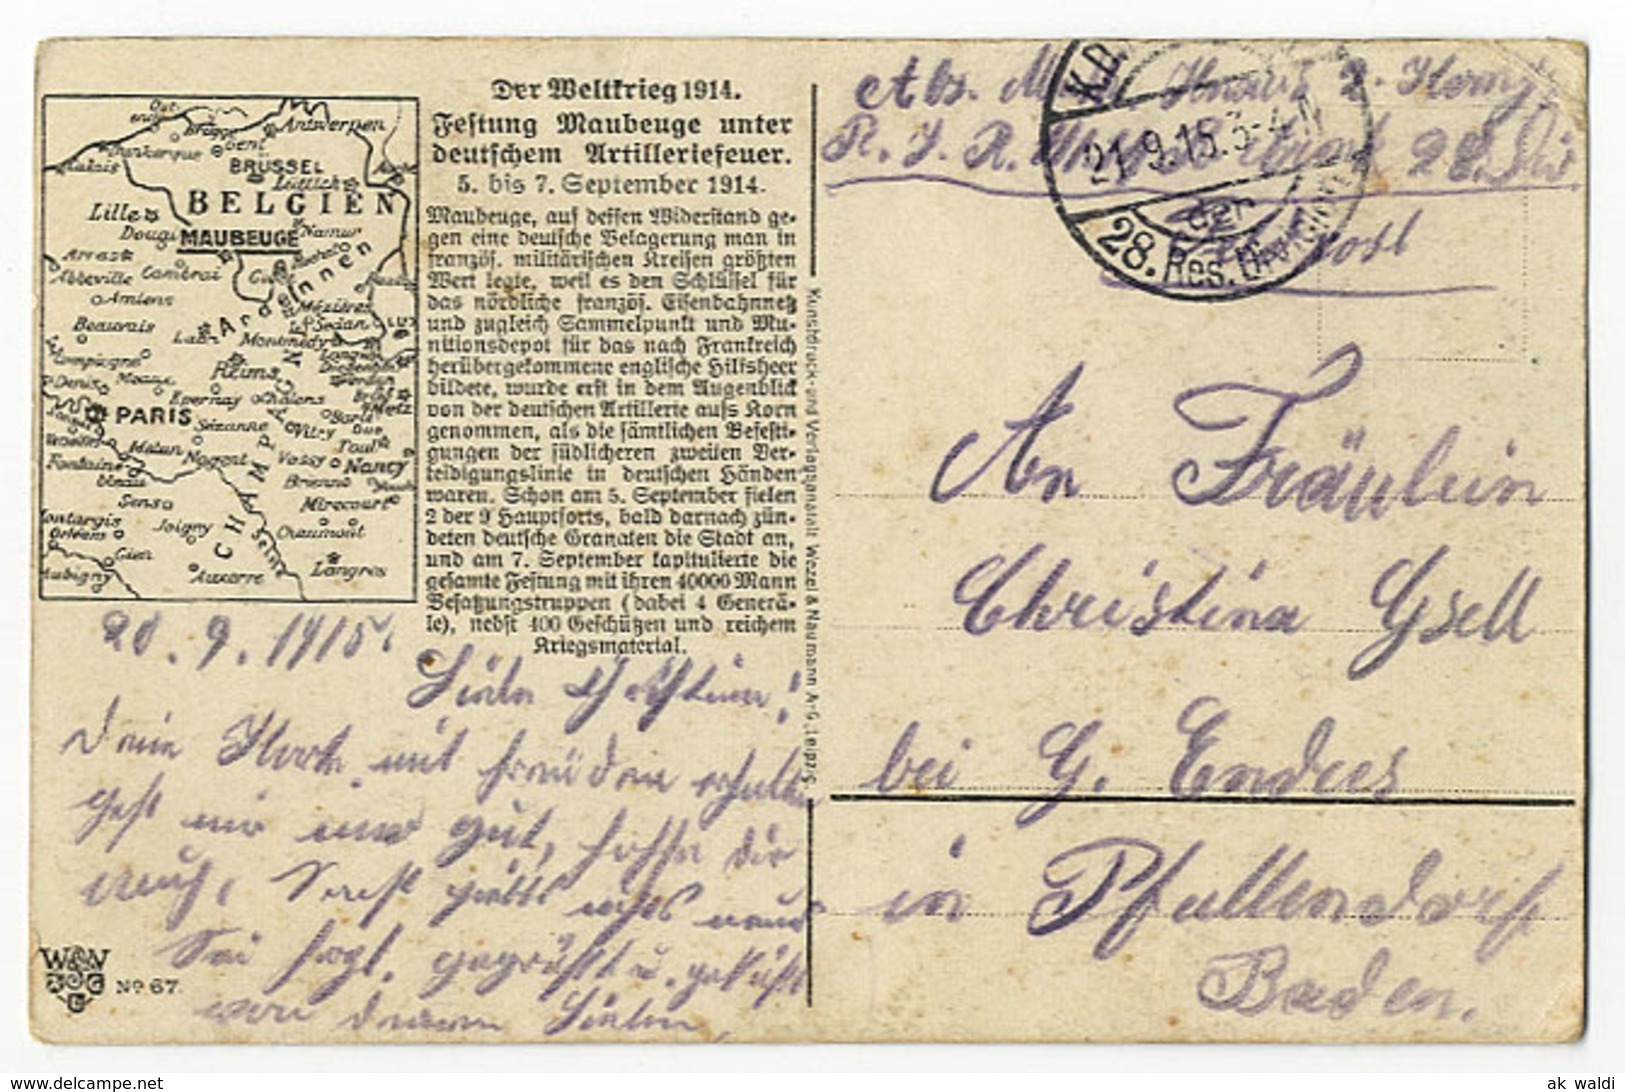 Der Weltkrieg 1914.
Festung Maubeuge unter
deutschem Artilleriefeuer.
5. bis 7. September 1914.
Maubeuge, auf dessen Widerstand ge-
gen eine deutsche Belagerung man in
französ. militärischen Kreisen größten
Wert legte, weil es den Schlüssel für
das nördliche französ. Eisenbahnnetz
und zugleich Sammelpunkt und Mu-
nitionsdepot für das nach Frankreich
herübergekommene englische Hilfsheer
bildete, wurde erst in dem Augenblick
von der deutschen Artillerie aufs Korn
genommen, als die sämtlichen Befesti-
gungen der südlicheren zweiten Ver-
teidigungslinie in deutschen Händen
waren. Schon am 5. September fielen
2 der 9 Hauptforts, bald darnach zün-
deten deutsche Granaten die Stadt an,
und am 7. September kapitulierte die
gesamte Festung mit ihren 40000 Mann
Besatzungstruppen (dabei 4 Generä-
le), nebst 400 Geschützen und reichem
Kriegsmaterial.
Antwerpen
Brügge
Gent
Dunkerque
Calais
BRÜSSEL
Lüttich
BELGIEN
Lille
Douai
MAUBEUGE
Namur
Arras
Cambrai
Abbeville
Ardennen
Amiens
Mézières
Sedan
Beauvais
Laon
Montmédy
Compiègne
Reims
Verdun
Metz
Epernay
Châlons
PARIS
Sézanne
Vitry
Toul
Versailles
Melun
Nogent
Vassy
Nancy
Fontaine-
bleau
Brienne
Sens
Mirecourt
Montargis
Orléans
Joigny
Chaumont
CHAMPAGNE
Seine
Gien
Auxerre
Langres
Aubigny
20. 9. 1915.
Liebe Christina!
Deine Karte mit Freuden erhalten
geht mir immer gut, hoffe dir
auch, Sonst gibts nichts neues
Sei herzl. gegrüßt u. geküßt
von deinem Lieben.
W&N
No 67.
Kunstdruck- und Verlagsanstalt Wezel & Naumann A.-G., Leipzig
Abs.
R. I. R.
K.D.
21.9.15. 3-4 N
der
28. Res. Division
An Fräulein
Christina Gsell
bei G. Endres
in Pfullendorf
Baden.
ak_waldi
www.delcampe.net